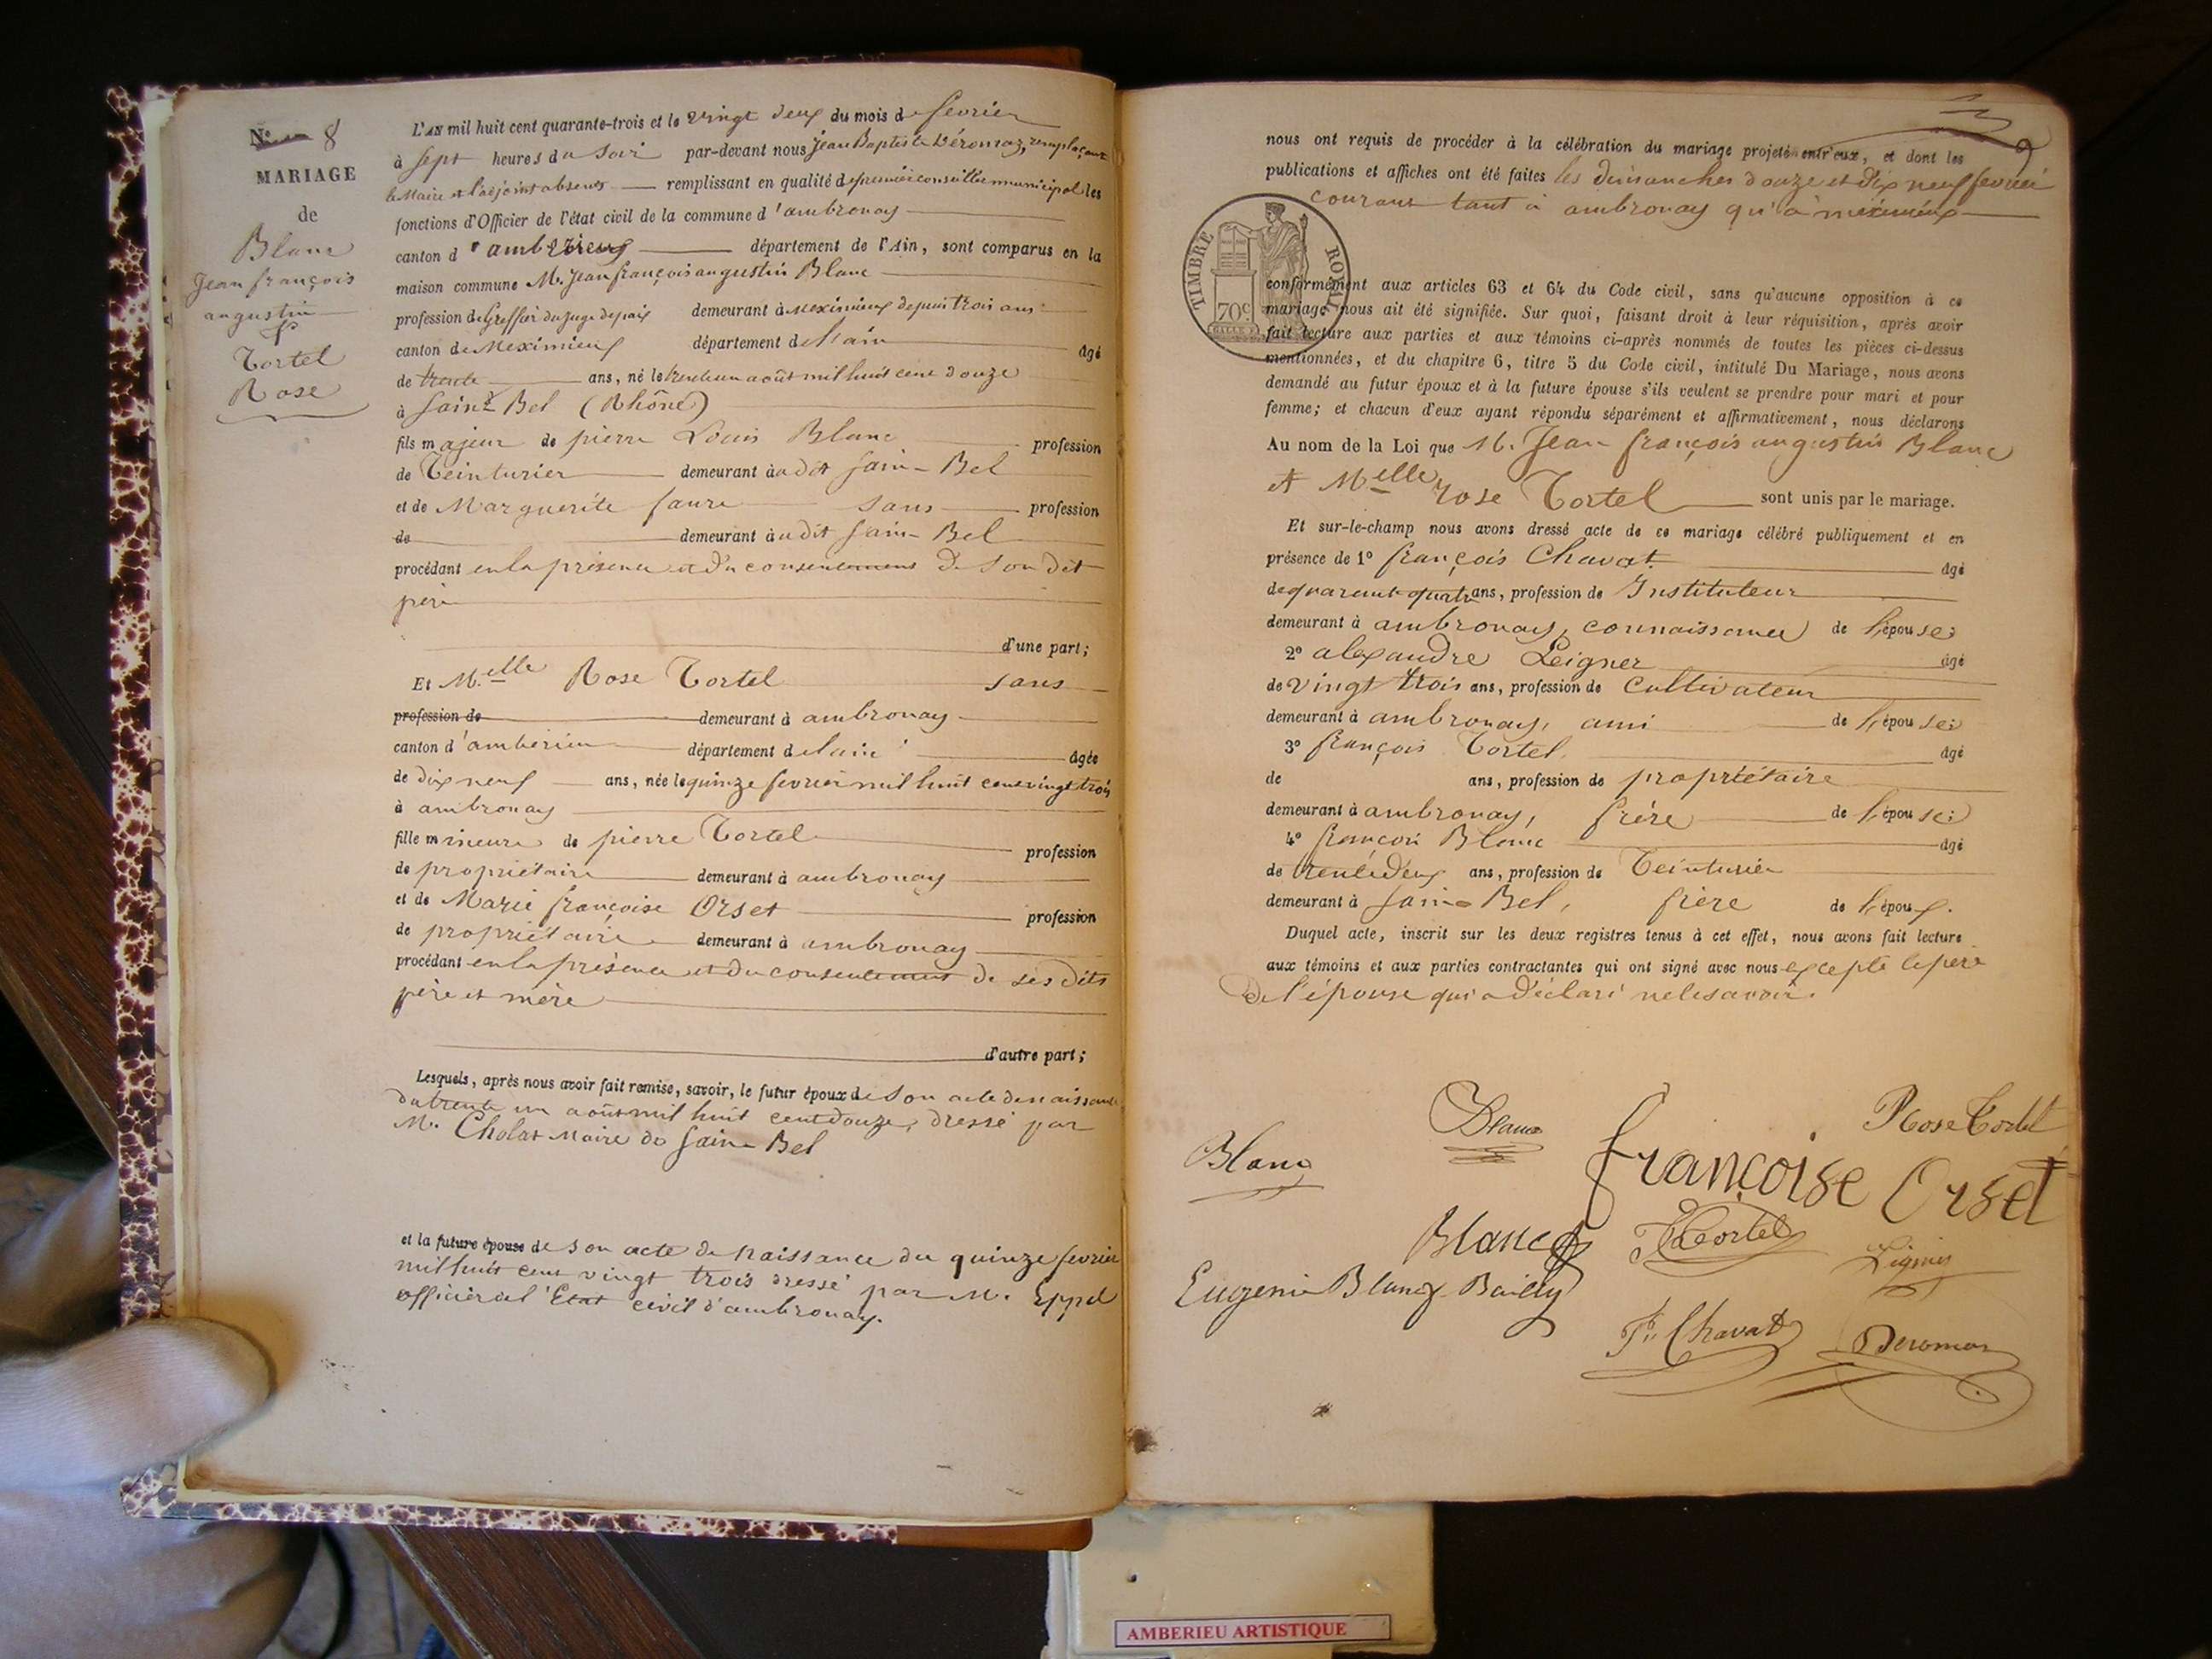 N.º 8
MARIAGE
de
Blanc
Jean françois
augustin
&
Tortel
Rose
L'AN mil huit cent quarante-trois et le vingt deux du mois de fevrier
à sept heures du soir par-devant nous Jean Baptiste Déromaz, remplaçant
le Maire et l'adjoint absens remplissant en qualité de premier conseiller municipal les
fonctions d'Officier de l'état civil de la commune d'ambronay
canton d'ambérieux département de l'Ain, sont comparus en la
maison commune M. Jean françois augustin Blanc
profession de Greffier du juge de paix demeurant à Meximieux depuis trois ans
canton de Meximieux département de l'ain âgé
de trente ans, né le trente un août mil huit cent douze
à Saint Bel (Rhône)
fils majeur de pierre Louis Blanc profession
de Teinturier demeurant audit Sain-Bel
et de Marguerite faure sans profession
de demeurant audit Sain-Bel
procédant en la présence et du consentement de son dit
père
d'une part;
Et M.elle Rose Tortel sans
profession de demeurant à ambronay
canton d'ambérieu département de l'ain âgée
de dix neuf ans, née le quinze fevrier mil huit cent vingt trois
à ambronay
fille mineure de pierre Tortel profession
de propriétaire demeurant à ambronay
et de Marie françoise Orset profession
de propriétaire demeurant à ambronay
procédant en la présence et du consentement de ses dits
père et mère
d'autre part;
Lesquels, après nous avoir fait remise, savoir, le futur époux de son acte de naissance
du trente un août mil huit cent douze, dressé par
M. Cholat Maire de Sain-Bel
et la future épouse de son acte de naissance du quinze fevrier
mil huit cent vingt trois dressé par M. Eppel
officier de l'Etat civil d'ambronay.
nous ont requis de procéder à la célébration du mariage projeté entr'eux, et dont les
publications et affiches ont été faites les dimanches douze et dix neuf fevrier
courant tant à ambronay qu'à meximieux
TIMBRE ROYAL
70 c.
conformément aux articles 63 et 64 du Code civil, sans qu'aucune opposition à ce
mariage nous ait été signifiée. Sur quoi, faisant droit à leur réquisition, après avoir
fait lecture aux parties et aux témoins ci-après nommés de toutes les pièces ci-dessus
mentionnées, et du chapitre 6, titre 5 du Code civil, intitulé Du Mariage, nous avons
demandé au futur époux et à la future épouse s'ils veulent se prendre pour mari et pour
femme; et chacun d'eux ayant répondu séparément et affirmativement, nous déclarons
Au nom de la Loi que M. Jean françois augustin Blanc
et M.elle rose Tortel sont unis par le mariage.
Et sur-le-champ nous avons dressé acte de ce mariage célébré publiquement et en
présence de 1º françois Chavat âgé
de quarante quatre ans, profession de Instituteur
demeurant à ambronay, connaissance de l'épouse;
2º alexandre Leigner âgé
de vingt trois ans, profession de cultivateur
demeurant à ambronay, ami de l'épouse;
3º françois Tortel âgé
de ans, profession de propriétaire
demeurant à ambronay, frère de l'épouse;
4º françois Blanc âgé
de trente deux ans, profession de Teinturier
demeurant à Sain-Bel, frère de l'époux.
Duquel acte, inscrit sur les deux registres tenus à cet effet, nous avons fait lecture
aux témoins et aux parties contractantes qui ont signé avec nous excepté le père
de l'épouse qui a déclaré ne le savoir.
Blanc
Rose Tortel
Blanc
françoise Orset
Blanc
Tortel
Eugenie Blanc Bailly
F. Chavat
Deromas
AMBERIEU ARTISTIQUE